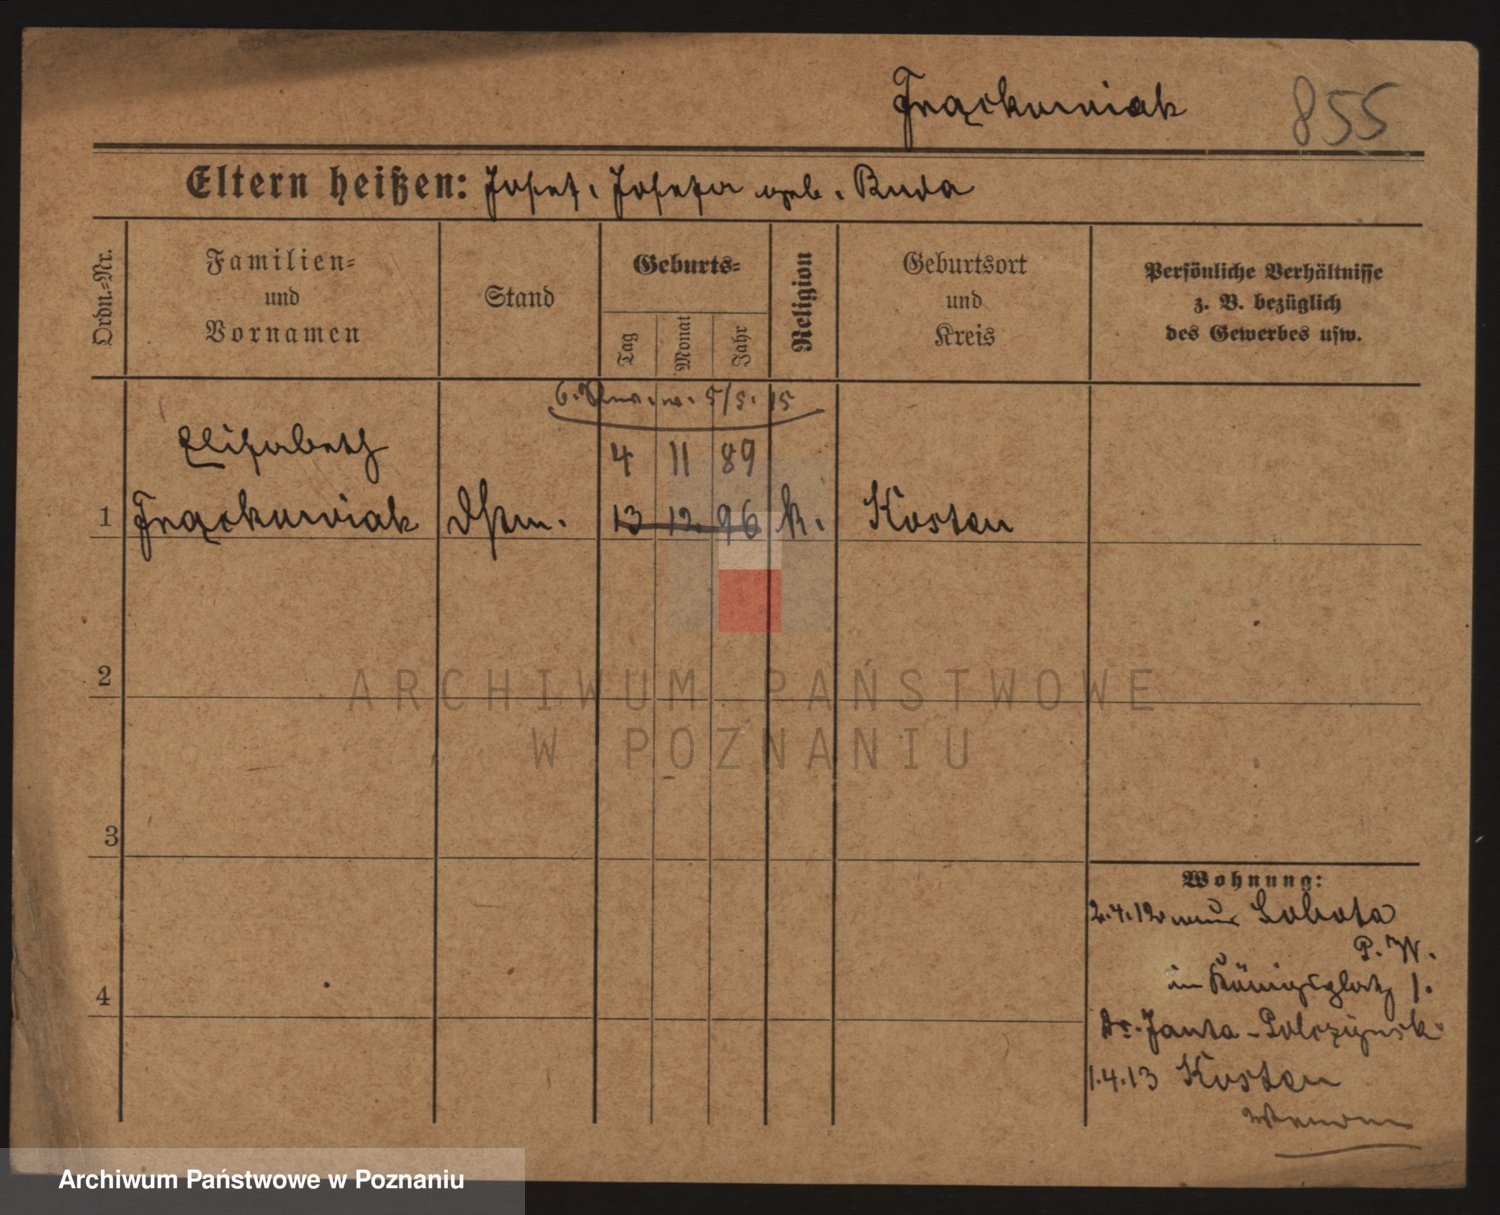 Frąckowiak 855
Eltern heißen: Josef, Josefa geb. Ruda
Ordn.-Nr.
Familien-
und
Vornamen
Stand
Geburts-
Tag
Monat
Jahr
Religion
Geburtsort
und
Kreis
Persönliche Verhältnisse
z. B. bezüglich
des Gewerbes usw.
5/5. 15
Elisabeth 4 11 89
1 Frąckowiak Dstm. 13 12. 96 k. Kosten
2
ARCHIWUM PAŃSTWOWE
W POZNANIU
3
Wohnung:
2.4.12 aus Sobota
P. W.
in Königsplatz 1.
Dr. Janta-Polczynski
4
1.4.13 Kosten
Archiwum Państwowe w Poznaniu